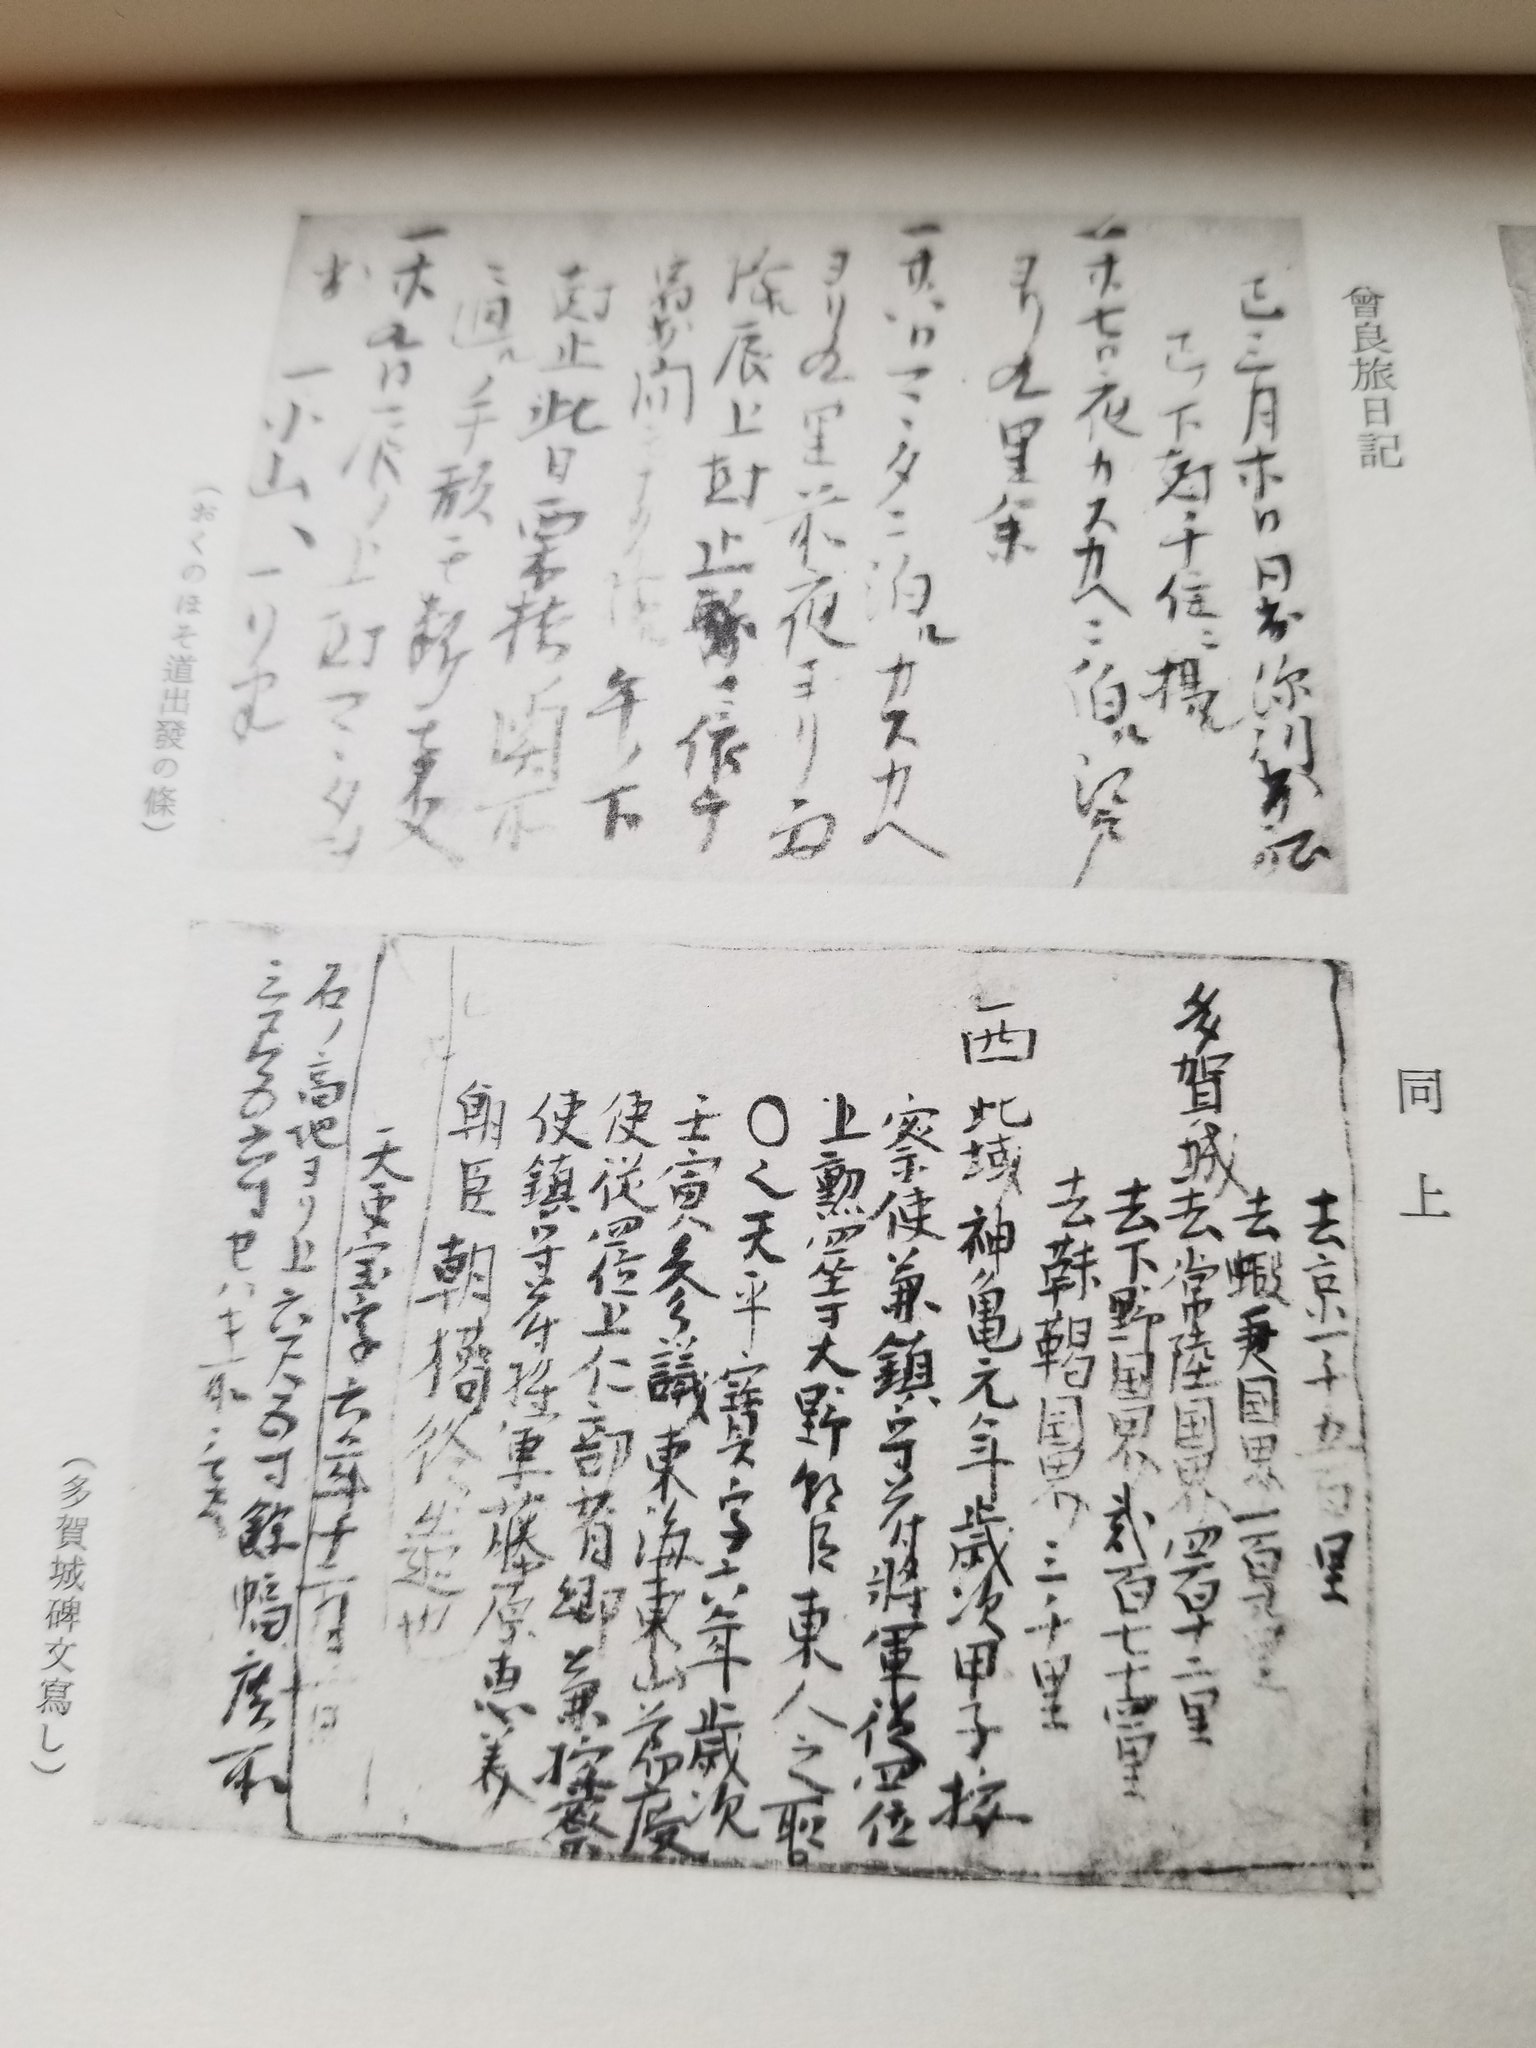 曾良旅日記
巳三月廿日同出深川出船
巳ノ下尅千住ニ揚ル
一廿七日夜カスカヘニ泊ル江戸
ヨリ九里余
一廿八日マヽタニ泊ルカスカヘ
ヨリ九里前夜ヨリ雨
降ル辰上尅止ニ依テ
宿出間モナク降ル午ノ下
尅止此日栗橋ノ関所
通ル手形モ断モ
一廿九日辰ノ上尅マヽタヲ
出
一小山ヘ一リ半
(おくのほそ道出發の條)
同上
去京一千五百里
去蝦夷国界一百
多賀城去常陸国界四百十二里
去下野国界貳百七十四里
去靺鞨国界三千里
西
此城神亀元年歳次甲子按
察使兼鎮守府將軍從四位
上勲四等大野朝臣東人之所
〇也天平寶字六年歳次
壬寅參議東海東山節度
使從四位上仁部省卿兼按察
使鎮守府將軍藤原恵美
朝臣朝獦修造也
天平宝字六年十二月一日
石ノ高地ヨリ上六尺五寸餘幅廣所
三尺
(多賀城碑文寫し)